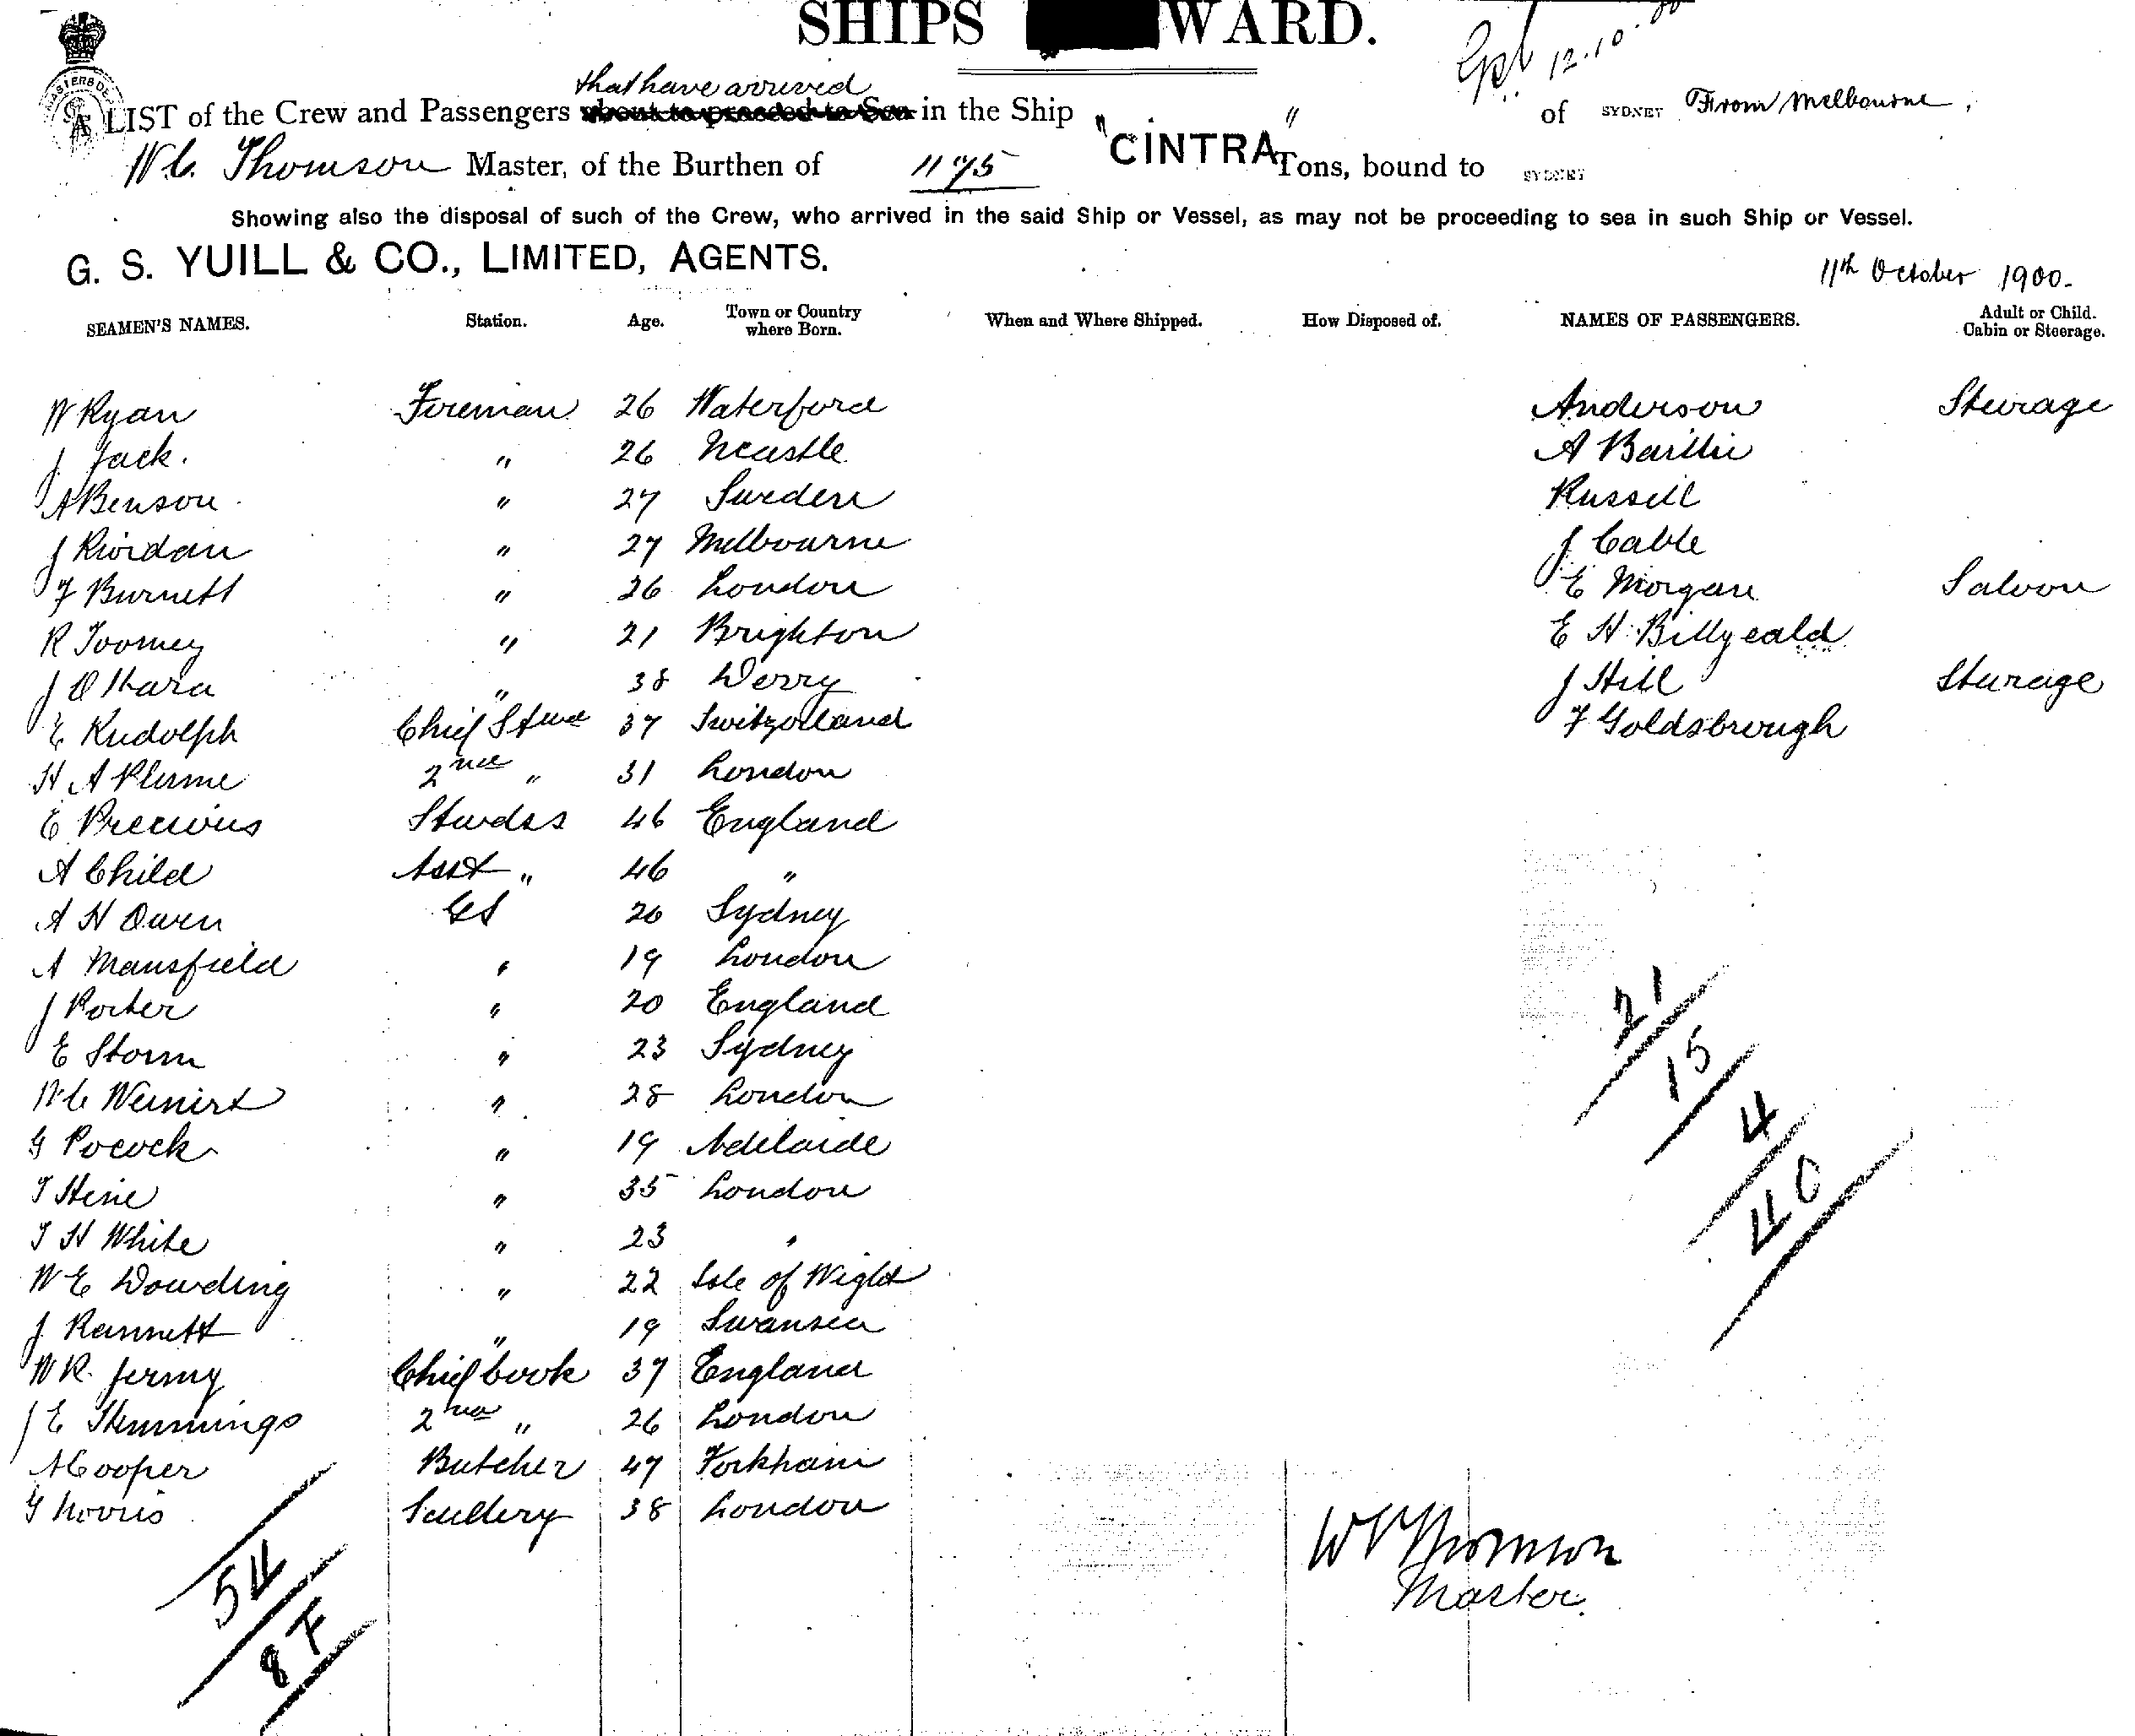 SHIPS WARD.
Gpl 12.10.00
that have arrived
LIST of the Crew and Passengers about to proceed to Sea in the Ship "CINTRA" of SYDNEY From Melbourne,
W C. Thomson Master, of the Burthen of 1175 Tons, bound to SYDNEY
Showing also the disposal of such of the Crew, who arrived in the said Ship or Vessel, as may not be proceeding to sea in such Ship or Vessel.
G. S. YUILL & CO., LIMITED, AGENTS.
11th October 1900.
SEAMEN'S NAMES. Station. Age. Town or Country where Born. When and Where Shipped. How Disposed of. NAMES OF PASSENGERS. Adult or Child. Cabin or Steerage.
W Ryan Fireman 26 Waterford Anderson Steerage
J Jack. " 26 Ncastle A Baillie
A Benson " 27 Sweden Russell
J Riordan " 27 Melbourne J Cable
F Burnett " 26 London E Morgan Saloon
R Toomey " 21 Brighton E H Billyeald
J O'Hara " 38 Derry J Hill Steerage
E Rudolph Chief Stwd 37 Switzerland F Goldsbrough
H A Plume 2nd " 31 London
E Precious Stwdss 46 England
A Child Asst " 46 "
A H Owen GS 20 Sydney
A Mansfield " 19 London
J Porter " 20 England
E Storm " 23 Sydney
W C Weinert " 28 London
G Pocock " 19 Adelaide
T Hine " 35 London
T H White " 23 "
W E Dowding " 22 Isle of Wight
J Rannett " 19 Swansea
W R. Jermy Chief Cook 37 England
J E Hemmings 2nd " 26 London
A Cooper Butcher 47 Forkham
G Norris Scullery 38 London
21
15
4
40
54
8 F
W C Thomson
Master.